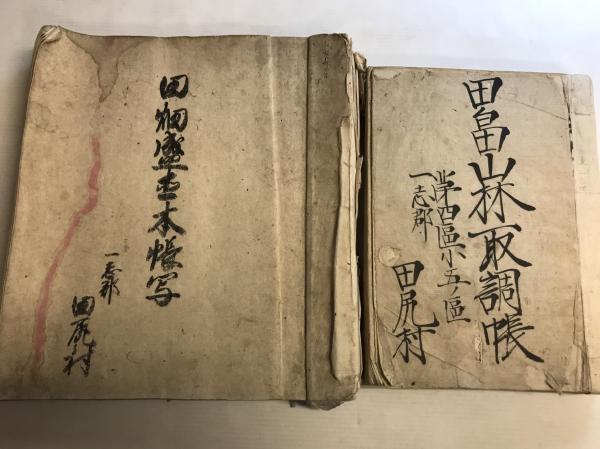 田畠山林取調帳
第四區小五ノ區
一志郡
田尻村
田畑盛土本帳写
一志郡
田尻村